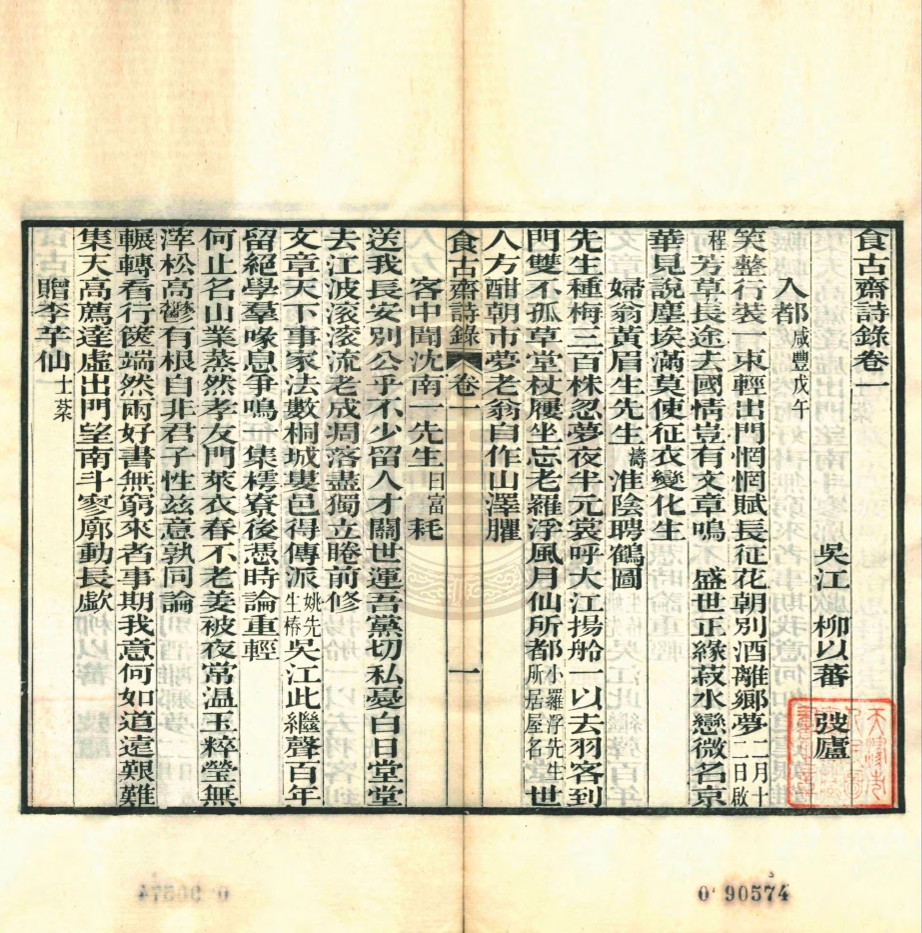 食古齋詩錄卷一
吳江　柳以蕃　弢廬
入都咸豐戊午
笑整行裝一束輕出門惘惘賦長征花朝別酒離鄉夢二月十二日啟
程芳草長途去國情豈有文章鳴　盛世正緣菽水戀微名京
華見說塵埃滿莫使征衣變化生
婦翁黃眉生先生濤淮陰聘鶴圖
先生種梅三百株忽夢夜半元裳呼大江揚舲一以去羽客到
門雙不孤草堂杖屨坐忘老羅浮風月仙所都小羅浮先生所居屋名世
人方酣朝市夢老翁自作山澤臞
食古齋詩錄　卷一　一
客中聞沈南一先生曰富耗
送我長安別公乎不少留人才關世運吾黨切私憂白日堂堂
去江波滾滾流老成凋落盡獨立睠前修
文章天下事家法數桐城婁邑得傳派姚先生椿吳江此繼聲百年
留絕學羣喙息爭鳴一集樗寮後憑時論重輕
何止名山業蒸然孝友門萊衣春不老姜被夜常溫玉粹瑩無
滓松高有根自非君子性兹意孰同論
輾轉看行篋端然兩好書無窮來者事期我意何如道遠艱難
集天高薦達虛出門望南斗寥廓動長歔
贈李芋仙士棻
0 90574